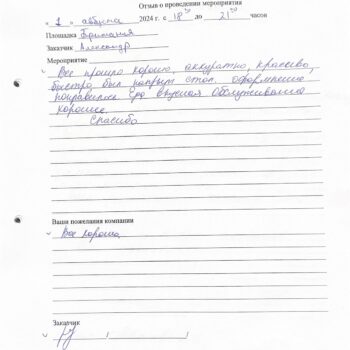 Отзыв о проведении мероприятия
« 1 » августа 2024 г. с 18 30 до 21 30 часов
Площадка Британия
Заказчик Александр
Мероприятие
Все прошло хорошо, аккуратно, красиво,
быстро был накрыт стол. оформление
понравилось Еда вкусная Обслуживание
хорошее.
Спасибо
Ваши пожелания компании
Все хорошо,
Заказчик
/ /